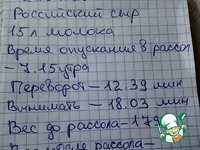 Российский сыр
15 л молока
Время опускания в рассол
- 7.15 утра
Переворот - 12.39 мин
Вынимать - 18.03 мин
Вес до рассола - 179
после рассола -